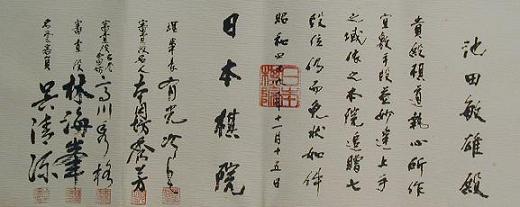 池田敏雄殿
貴殿棋道執心所作
宜敷手段益妙達上手
之域依之本院追贈七
段位仍而免状如件
昭和四十九年十一月十五日
日本棋院
理事長 有光次郎
審査役名人 本因坊秀芳
高川秀格
審査役 林海峯
呉清源